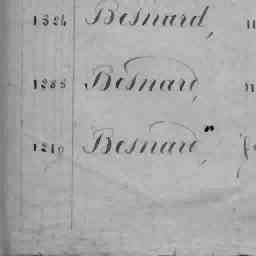 1324 Besnard,
1285 Besnard,
1210 Besnard, "